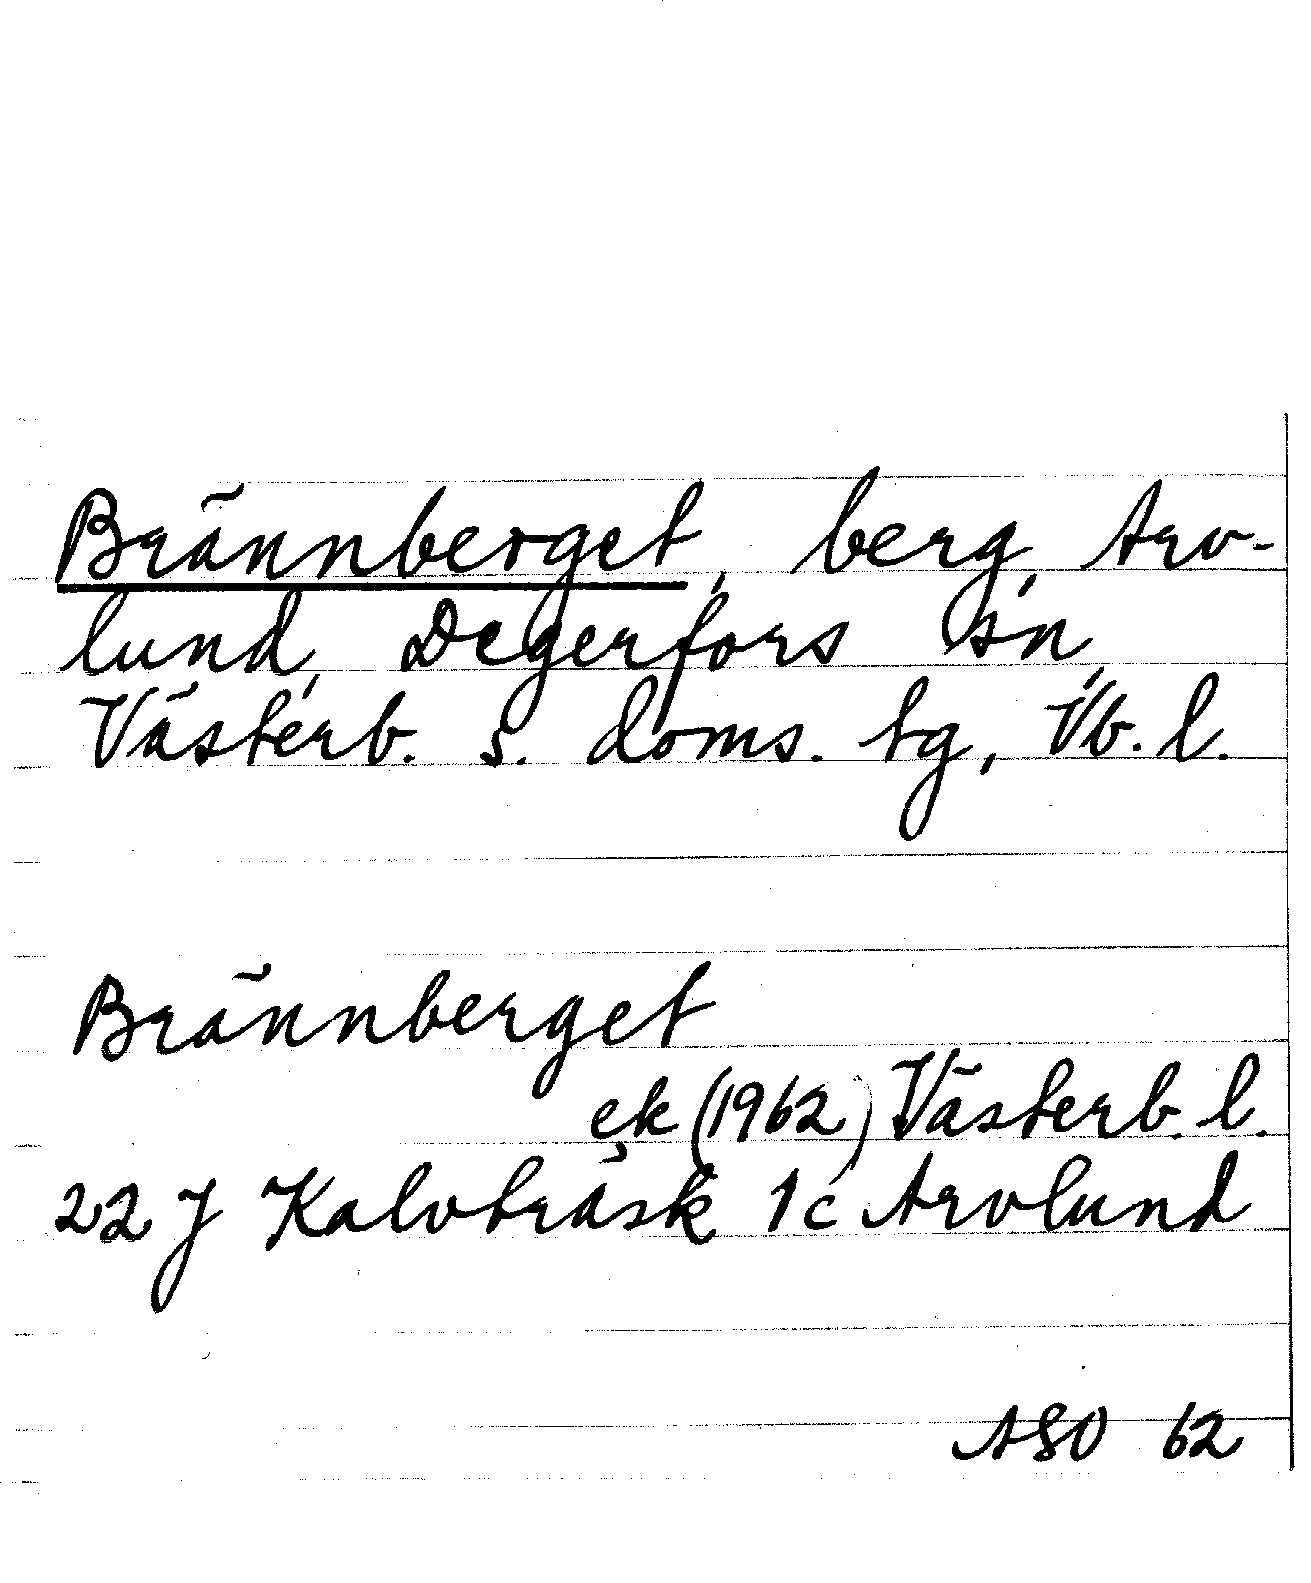 Brännberget, berg, Arv-
lund, Degerfors sn,
Västerb. s. doms. tg, Vb. l.
Brännberget
ek (1962) Västerb. l.
22 J Kalvträsk 1c Arvlund
ASO 62